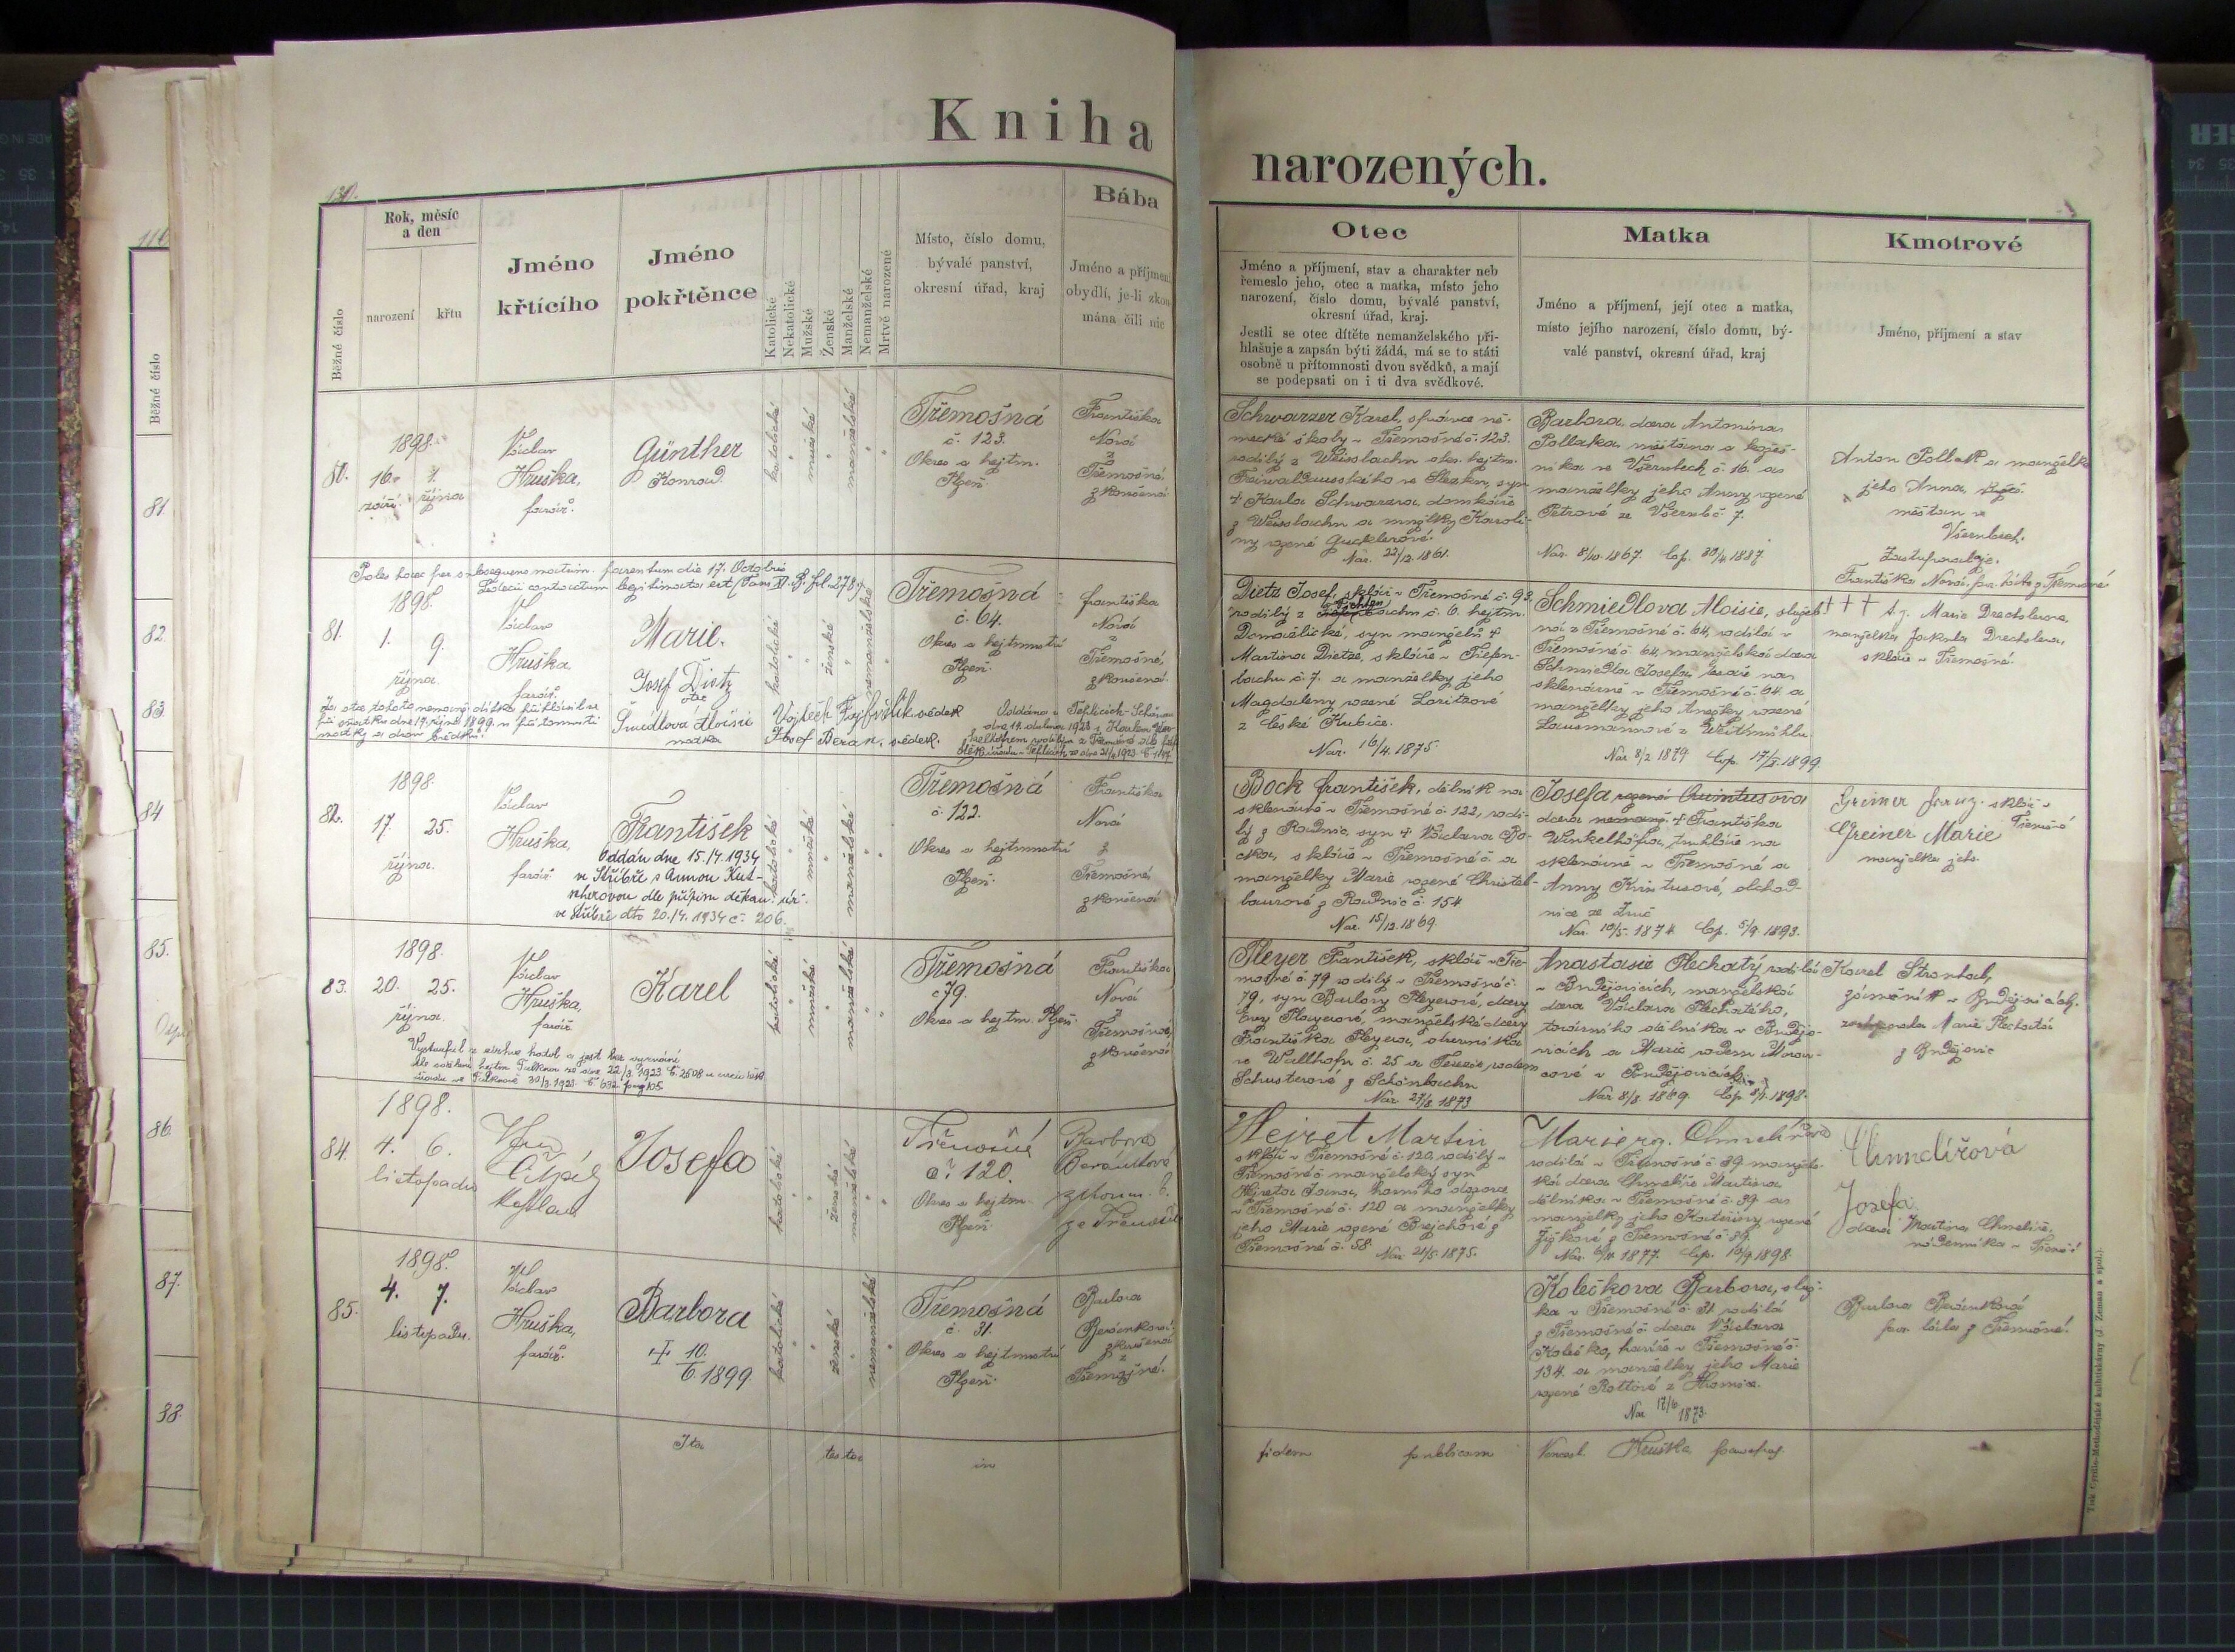 Kniha
narozených.
130.
Běžné číslo
Rok, měsíc
a den
narození
křtu
Jméno
křtícího
Jméno
pokřtěnce
Katolické
Nekatolické
Mužské
Ženské
Manželské
Nemanželské
Mrtvě narozené
Místo, číslo domu,
bývalé panství,
okresní úřad, kraj
Bába
Jméno a příjmení
obydlí, je-li zkou
mána čili nic
Otec
Jméno a příjmení, stav a charakter neb
řemeslo jeho, otec a matka, místo jeho
narození, číslo domu, bývalé panství,
okresní úřad, kraj.
Jestli se otec dítěte nemanželského při-
hlašuje a zapsán býti žádá, má se to státi
osobně u přítomnosti dvou svědků, a mají
se podepsati on i ti dva svědkové.
Matka
Jméno a příjmení, její otec a matka,
místo jejího narození, číslo domu, bý-
valé panství, okresní úřad, kraj
Kmotrové
Jméno, příjmení a stav
Běžné číslo
81.
82.
83.
84
85.
86.
87.
88.
80.
1898.
16. 1.
září. října
Václav
Hruška,
farář.
Günther
Konrad.
katolické
mužské
manželské
Třemošná
č. 123.
Okres a hejtm.
Plzeň.
Františka
Nová
z
Třemošné,
zkoušená
Schwarzer Karel, správce ně-
mecké školy v Třemošné č. 123.
rodilý z Weisslachn okr. hejtm.
Freiwaldauského ve Slezku, syn
† Karla Schwarzra, domkáře
z Weisslachn a mnžlky Karoli-
ny rozené Gucklerové.
Nar. 22/12. 1861.
Barbora, dcera Antonína
Pollaka, měšťana a kožeš-
níka ve Všerubech č. 16. a
manželky jeho Anny rozené
Petrové ze Všerub č. 7.
Nar. 8/10. 1867. Cop. 30/4 1887.
Anton Pollak a manželka
jeho Anna,
měšťan v
Všerubech.
Zastupovala je.
Františka Nová, z Třemošné
Proles haec per subsequens matrim. parentum die 17. Octobris
contractum legitimata est
81.
1898.
1. 9.
října.
Václav
Hruška
farář.
Marie.
katolické
ženské
nemanželské
Třemošná
č. 64.
Okres a hejtmanství
Plzeň.
Františka
Nová
z
Třemošné,
zkoušená.
Za otce tohoto nemanž. dítka přihlásil se
při sňatku dne 17. října 1899. v přítomnosti
matky a dvou svědků:
Josef Dietz
otec
Šmídlová Aloisie
matka
Vojtěch svědek
Josef Beran, svědek.
Oddána v Teplicích-Schönau
Dietz Josef, sklář v Třemošné č. 93.
rodilý z č. 6. hejtm.
Domažlické, syn manželů †
Martina Dietze, skláře v
č. 7. a manželky jeho
Magdaleny rozené Loritzové
z České Kubice.
Nar. 16/4. 1875.
Schmiedlova Aloisie, služeb-
ná z Třemošné č. 64, rodilá v
Třemošné č. 64, manželská dcera
Schmiedla Josefa, na
sklenárně v Třemošné č. 64. a
manželky jeho Anežky rozené
Nar. 8/2 1879 Cop. 17/X. 1899.
† † † t.j. Marie Drechslerova,
manželka Jakuba Drechslera,
skláře v Třemošné.
82.
1898.
17. 25.
října.
Václav
Hruška,
farář
František
Oddán dne 15./4. 1934
ve Stříbře s Annou Kut-
scherovou dle přípisu děkan. úř.
ve Stříbře dto 20./4. 1934 č. 206.
katolické
mužské
manželské
Třemošná
č. 122.
Okres a hejtmanství
Plzeň.
Františka
Nová
z
Třemošné
zkoušená
Bock František, dělník na
sklenárně v Třemošné č. 122, rodi-
lý z Roudnic, syn † Václava Bo-
cka, skláře v Třemošné č. a
manželky Marie rozené Christel-
bauerové z Roudnic č. 154
Nar. 15/12. 1869.
Josefa rozená Quintusova
dcera nemanž. † Františka
Winkelhöfra, truhláře na
sklenárně v Třemošné a
Anny Kvintusové,
nice ze Zruč
Nar. 10/5. 1874. Cop. 5/9 1893.
Greiner Franz. sklář v
Třemošné
Greiner Marie
manželka jeho
83.
1898.
20. 25.
října.
Václav
Hruška,
farář
Karel
katolické
mužské
manželské
Třemošná
č 79.
Okres a hejtm. Plzeň.
Františka
Nová
z
Třemošné,
zkoušená
Vystoupil z církve katol a jest bez vyznání
dle sdělení hejtm Falknov ze dne 22/3. 1923 č. 2508
úřadu ve Falknově 30/3. 1923. č 632
Pleyer František, sklář v Tře-
mošné č. 79 rodilý v Třemošné č.
79, syn Barbory Pleyerové, dcery
Evy Pleyerové, manželské dcery
Františka Pleyera,
ve Wallhofu č. 25 a Terezie rodem
Schusterové z Schönbachu
Nar 27/8. 1873
Anastasie Plechatý, rodilá
v Budějovicích, manželská
dcera Václava Plechatého,
továrního dělníka v Budějo-
vicích a Marie rodem Morav-
cové v Budějovicích.
Nar. 8/8. 1869. Cop. 1898.
Karel Stronbach,
zámečník v Budějovicích.
zastupovala Marie Plechatá
z Budějovic
84.
1898.
4. 6.
listopadu
Josefa
katolické
ženské
manželské
Třemošná
č. 120.
Okres a hejtm.
Plzeň.
Barbora
Beránková
zkoum. b.
ze Třemošné
Hejret Martin
sklář v Třemošné č. 120, rodilý v
Třemošné č. manželský syn
Hejreta Jana, horního dozorce
v Třemošné č. 120 a manželky
jeho Marie rozené Brejchové z
Třemošné č. 58.
Nar. 21/5. 1875.
Marie rz. Chmelířová
rodilá v Třemošné č. 39. manžel-
ská dcera Chmelíře Martina
dělníka v Třemošné č. 39. a
manželky jeho Kateřiny rozené
Žižkové z Třemošné č. 39.
Nar. 1877. Cop. 1898.
Chmelířová
Josefa
dcera Martina Chmelíře,
nádenníka v Třemoš.
85.
1898.
4. 7.
listopadu.
Václav
Hruška,
farář.
Barbora
† 10./6. 1899
katolické
ženské
nemanželské
Třemošná
č. 31.
Okres a hejtmanství
Plzeň.
Barbora
Beránková
zkoušená
z
Třemošné.
Kolečkova Barbora, služ-
ka v Třemošné č. 31. rodilá
z Třemošné č. dcera Václava
Kolečka, havíře v Třemošné č.
134. a manželky jeho Marie
rozené Rottové z Hromnic.
Nar. 17/6 1873.
Barbora Beránková
por. bába z Třemošné.
Ita testor in
fidem publicam Vencesl. Hruška
Tisk Cyrillo-Methodějské knihtiskárny (J. Zeman a spol.).